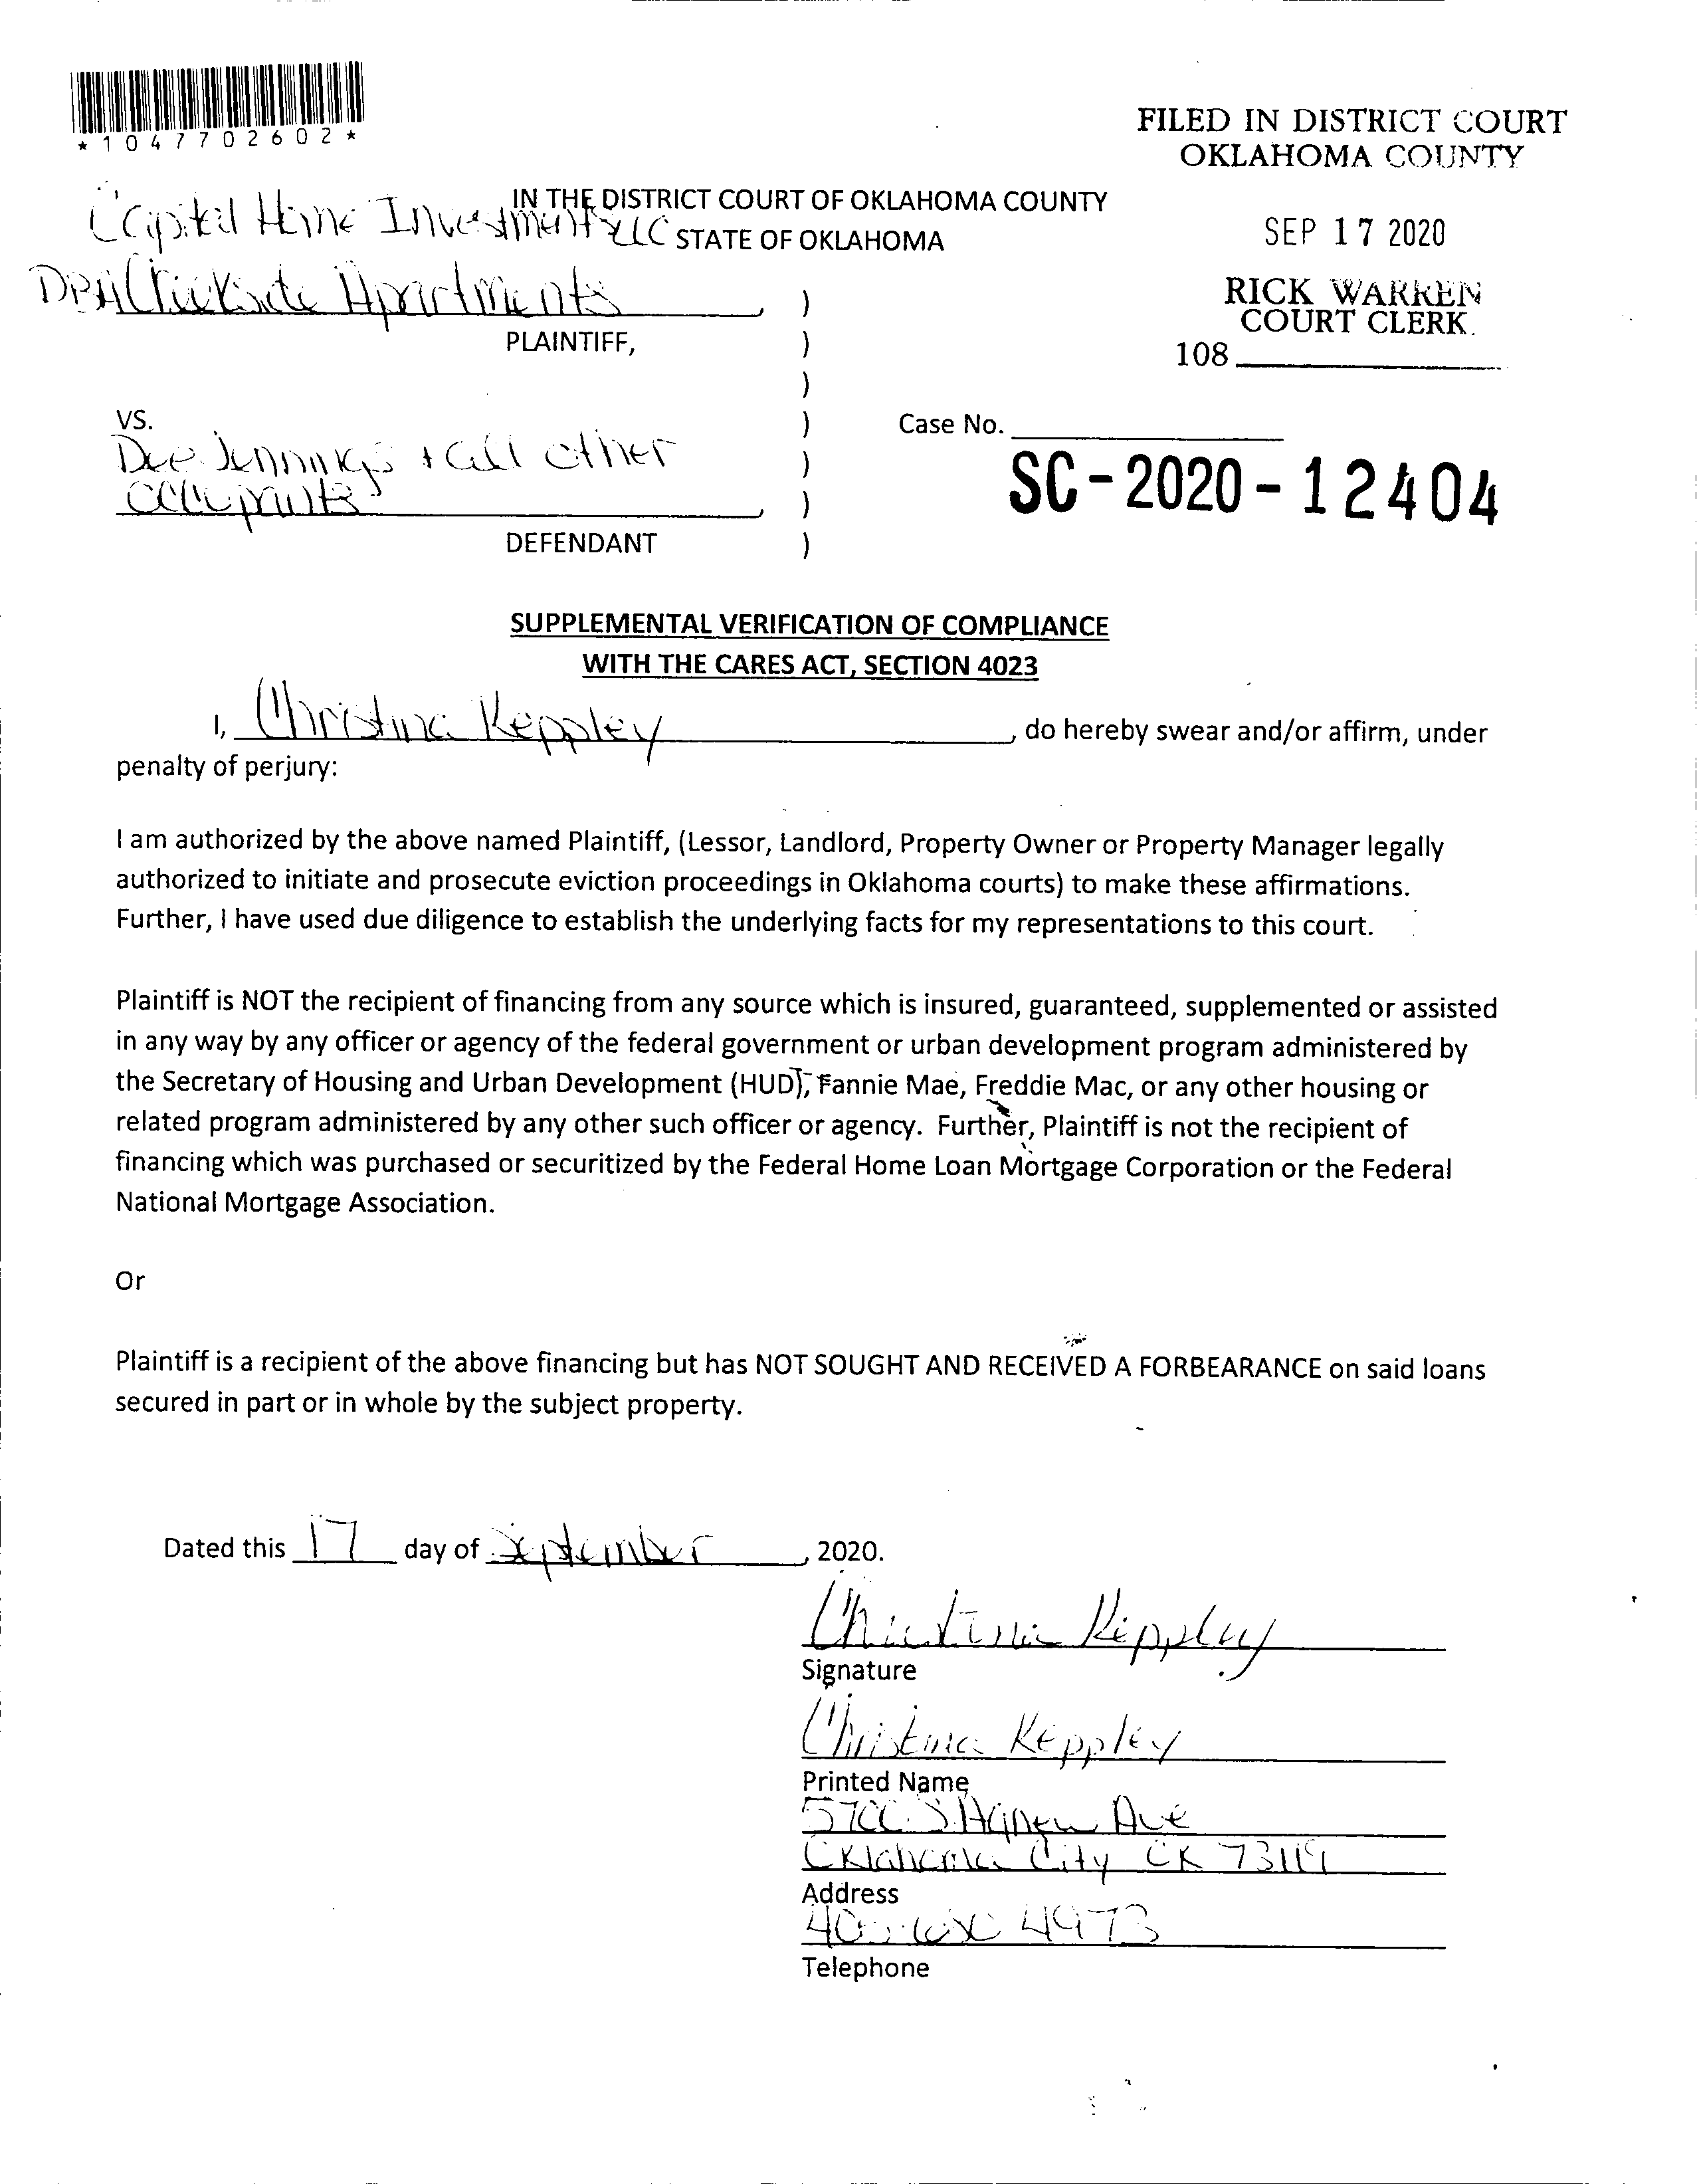 *1047702602*
FILED IN DISTRICT COURT
OKLAHOMA COUNTY
IN THE DISTRICT COURT OF OKLAHOMA COUNTY
Capital Home Investments LLC
STATE OF OKLAHOMA
SEP 17 2020
DBA Creekside Apartments
)
RICK WARREN
COURT CLERK.
PLAINTIFF,
)
108
)
VS.
)
Case No.
Dee Jennings + all other
)
SC-2020-12404
occupants
)
DEFENDANT
)
SUPPLEMENTAL VERIFICATION OF COMPLIANCE
WITH THE CARES ACT, SECTION 4023
I, Christina Keppley, do hereby swear and/or affirm, under
penalty of perjury:
I am authorized by the above named Plaintiff, (Lessor, Landlord, Property Owner or Property Manager legally
authorized to initiate and prosecute eviction proceedings in Oklahoma courts) to make these affirmations.
Further, I have used due diligence to establish the underlying facts for my representations to this court.
Plaintiff is NOT the recipient of financing from any source which is insured, guaranteed, supplemented or assisted
in any way by any officer or agency of the federal government or urban development program administered by
the Secretary of Housing and Urban Development (HUD), Fannie Mae, Freddie Mac, or any other housing or
related program administered by any other such officer or agency. Further, Plaintiff is not the recipient of
financing which was purchased or securitized by the Federal Home Loan Mortgage Corporation or the Federal
National Mortgage Association.
Or
Plaintiff is a recipient of the above financing but has NOT SOUGHT AND RECEIVED A FORBEARANCE on said loans
secured in part or in whole by the subject property.
Dated this 17 day of September, 2020.
Christina Keppley
Signature
Christina Keppley
Printed Name
5700 S Agnew Ave
Oklahoma City OK 73119
Address
4973
Telephone